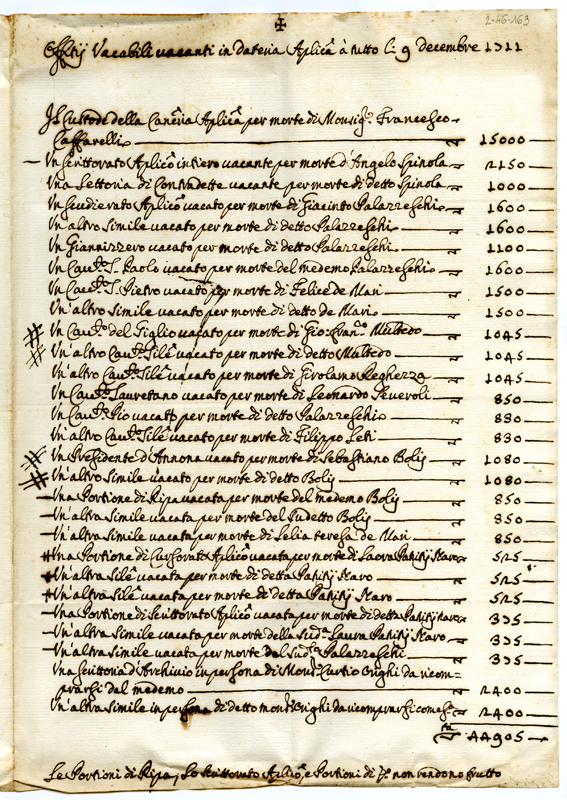 2-46-163
Effetti Vacabili vacanti in Dataria Aplicã à tutto li 9 Decembre 1711
Il Custode della Canc̃ria Aplicã per morte di Monsig.r Francesco
Caffarelli 15000
Un Scrittorato Aplicõ intiero vacante per morte d'Angelo Spinola 2150
Una Lettoria di Contradette vacante per morte di detto Spinola 1000
Un Scudierato Aplicõ vacato per morte di Giacinto Palazzeschi 1600
Un'altro simile vacato per morte di detto Palazzeschi 1600
Un Giannizzero vacato per morte di detto Palazzeschi 1100
Un Cau.to S. Paolo vacato per morte del medemo Palazzeschi 1600
Un Cau.to S. Pietro vacato per morte di Felice de Mari 1500
Un'altro simile vacato per morte di detto de Mari 1500
Un Cau.to del Giglio vacato per morte di Gio: Fran.co Multedo 1045
Un'altro Cau.to Silẽ vacato per morte di detto Multedo 1045
Un'altro Cau.to Silẽ vacato per morte di Girolamo Reghezza 1045
Un Cau.to Lauretano vacato per morte di Leonardo Severoli 850
Un Cau.to Pio vacato per morte di detto Palazzeschi 830
Un'altro Cau.to Silẽ vacato per morte di Filippo Leti 830
Un Presidente d'Annona vacato per morte di Sebastiano Bolij 1080
Un'altro simile vacato per morte di detto Bolij 1080
Una Portione di Ripa vacata per morte del medemo Bolij 850
Un'altra simile vacata per morte del sudetto Bolij 850
Un'altra simile vacata per morte di Lelia teresa de Mari 850
Una Portione di Cursorato Aplicõ vacata per morte di Laora 525
Un'altra Silẽ vacata per morte di detta 525
Un'altra Silẽ vacata per morte di detta 525
Una Portione di Scrittorato Aplicõ vacata per morte di detta 335
Un'altra simile vacata per morte della sud.a Laura 335
Un'altra simile vacata per morte del sud.o Palazzeschi 335
Una scrittoria d'Archivio in persona di Mons.r Curtio Orighi da ricom-
prarsi dal medemo 2400
Un'altra simile in persona di detto mons.r Orighi da ricomprarsi come s.a 2400
44905
Le Portioni di Ripa, Lo Scrittorato Aplicõ, e Portioni di non rendono frutto